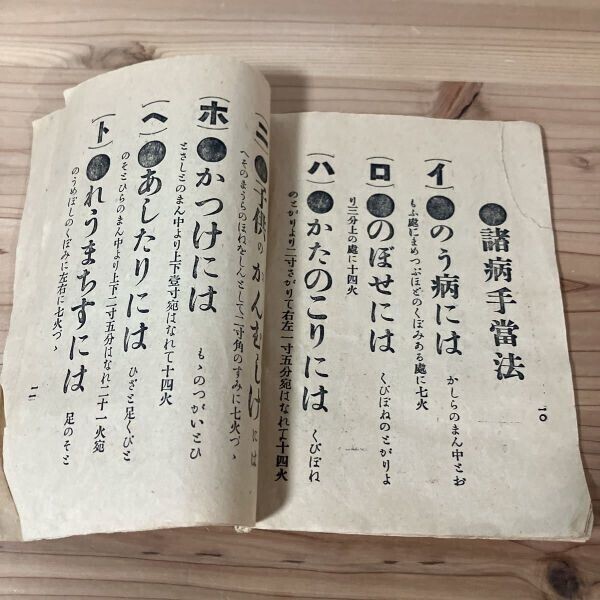 ●諸病手當法
(イ)●のう病には かしらのまん中とお
もふ處にまめつぶほどのくぼみある處に七火
(ロ)●のぼせには くびぼねのとがりよ
り三分上の處に十四火
(ハ)●かたのこりには くびぼね
のとがりより二寸さがりて右左一寸五分宛はなれて十四火
一〇
(ニ)●子供のかんむしけには
へそのまうらのほねをしんとして二寸角のすみに七火づゝ
(ホ)●かつけには もゝのつがいとひ
とさしとのまん中より上下壹寸宛はなれて十四火
(ヘ)●あしたりには ひざと足くびと
のそとひらのまん中より上下二寸五分はなれ二十一火宛
(ト)●れうまちすには 足のそと
のうめぼしのくぼみに左右に七火づゝ
一一